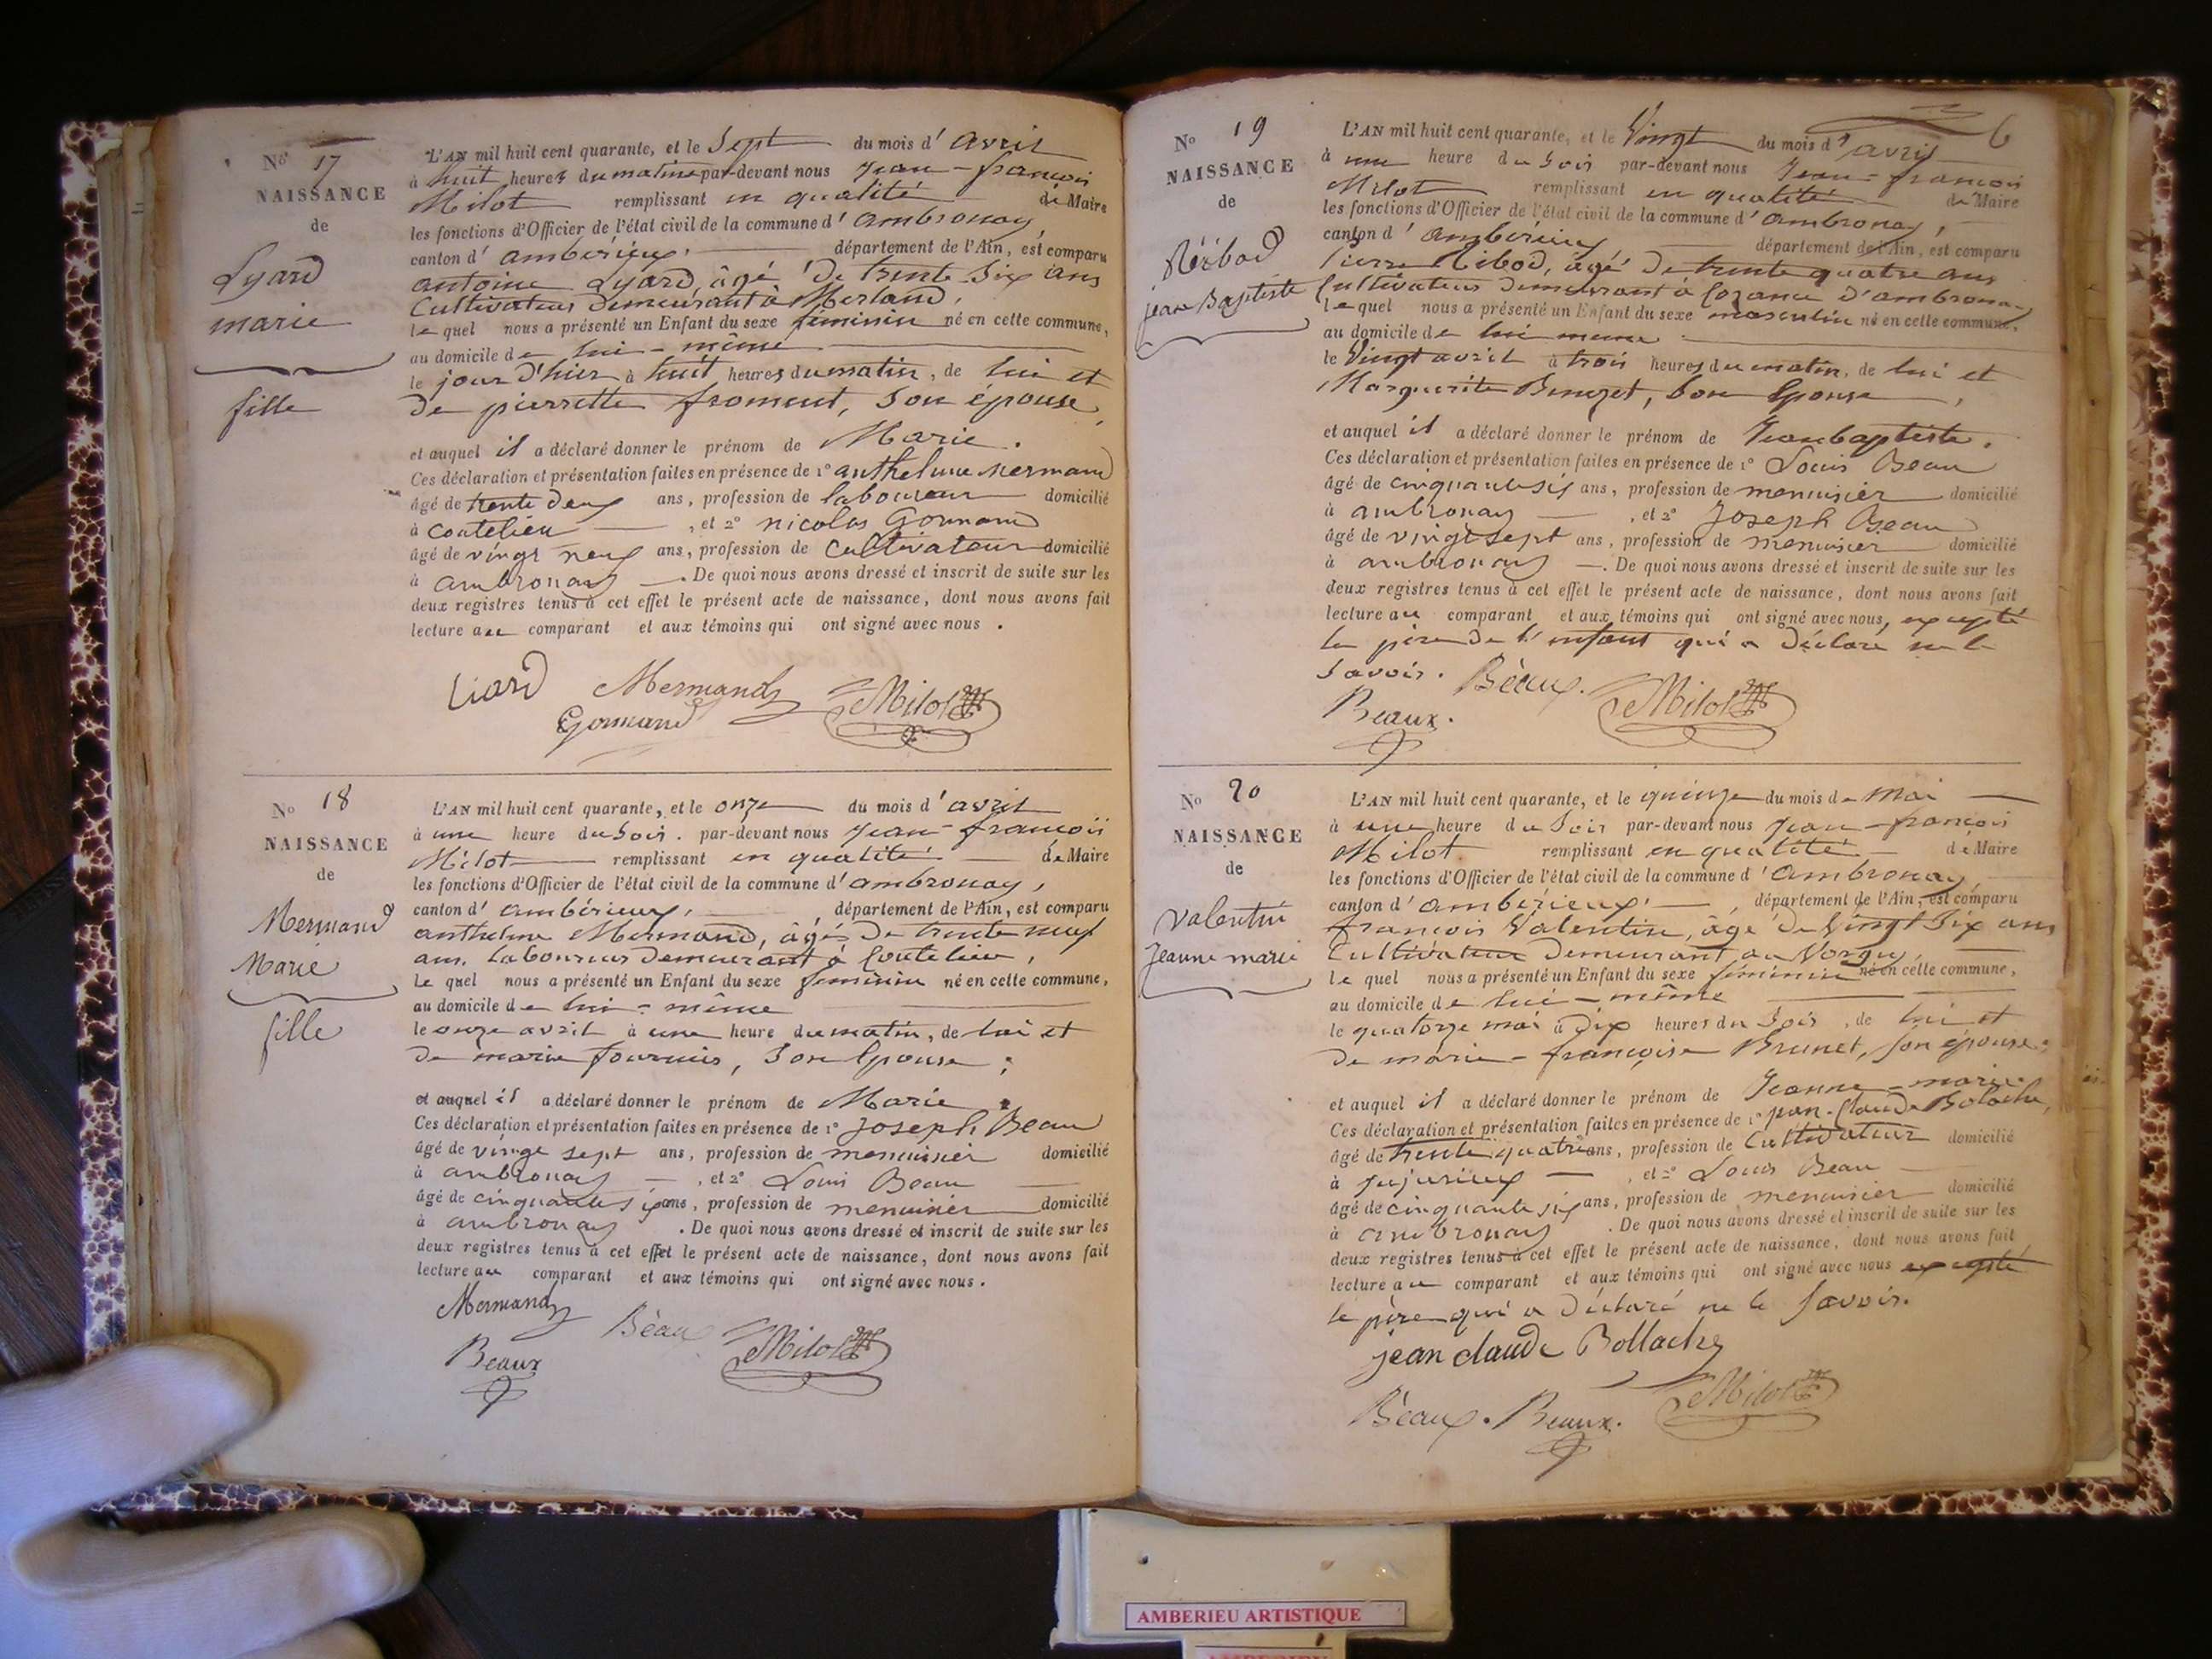 No 17
NAISSANCE
de
Lyard
marie
fille
L'AN mil huit cent quarante, et le Sept du mois d' avril
à huit heures du matin par-devant nous Jean-françois
Milot remplissant en qualité de Maire
les fonctions d'Officier de l'état civil de la commune d' ambronay,
canton d' ambérieux, département de l'Ain, est comparu
antoine Lyard, âgé de trente-Six ans
Cultivateur demeurant à Merland,
le quel nous a présenté un Enfant du sexe féminin né en cette commune,
au domicile de lui-même
le jour d'hier à huit heures du matin, de lui et
de pierrette froment, Son épouse,
et auquel il a déclaré donner le prénom de Marie.
Ces déclaration et présentation faites en présence de 1° anthelme mermand
âgé de trente deux ans, profession de laboureur domicilié
à coutelieu, et 2° nicolas Gormand
âgé de vingt neuf ans, profession de Cultivateur domicilié
à ambronay. De quoi nous avons dressé et inscrit de suite sur les
deux registres tenus à cet effet le présent acte de naissance, dont nous avons fait
lecture au comparant et aux témoins qui ont signé avec nous.
Liard Mermand
Gormand Milot
No 18
NAISSANCE
de
Mermand
Marie
fille
L'AN mil huit cent quarante, et le onze du mois d' avril
à une heure du Soir. par-devant nous Jean-françois
Milot remplissant en qualité de Maire
les fonctions d'Officier de l'état civil de la commune d' ambronay,
canton d' ambérieux, département de l'Ain, est comparu
anthelme Mermand, âgé de trente neuf
ans. Laboureur demeurant à Coutelieu,
Le quel nous a présenté un Enfant du sexe féminin né en cette commune,
au domicile de lui-même
le onze avril à une heure du matin, de lui et
de marie fournier, Son Epouse;
et auquel il a déclaré donner le prénom de Marie.
Ces déclaration et présentation faites en présence de 1° Joseph Beau
âgé de vingt sept ans, profession de menuisier domicilié
à ambronay, et 2° Louis Beau
âgé de cinquante six ans, profession de menuisier domicilié
à ambronay. De quoi nous avons dressé et inscrit de suite sur les
deux registres tenus à cet effet le présent acte de naissance, dont nous avons fait
lecture au comparant et aux témoins qui ont signé avec nous.
Mermand
Béaux
Beaux Milot
6
No 19
NAISSANCE
de
Ribod
jean Baptiste
L'AN mil huit cent quarante, et le Vingt du mois d' avril
à une heure du Soir par-devant nous Jean-françois
Milot remplissant en qualité de Maire
les fonctions d'Officier de l'état civil de la commune d' ambronay,
canton d' ambérieux département de l'Ain, est comparu
Pierre Ribod, âgé de trente quatre ans
Cultivateur demeurant à Cozance d'ambronay
le quel nous a présenté un Enfant du sexe masculin né en cette commune,
au domicile de lui meme
le Vingt avril à trois heures du matin, de lui et
Marguerite Benozet, Son Epouse,
et auquel il a déclaré donner le prénom de Jean baptiste.
Ces déclaration et présentation faites en présence de 1° Louis Beau
âgé de cinquante six ans, profession de menuisier domicilié
à ambronay, et 2° Joseph Beau
âgé de vingt sept ans, profession de menuisier domicilié
à ambronay. De quoi nous avons dressé et inscrit de suite sur les
deux registres tenus à cet effet le présent acte de naissance, dont nous avons fait
lecture au comparant et aux témoins qui ont signé avec nous, excepté
le père de l'enfant qui a déclaré ne le
Savoir. Béaux.
Beaux. Milot
No 20
NAISSANCE
de
Valentin
Jeanne marie
L'AN mil huit cent quarante, et le quinze du mois de Mai
à une heure du Soir par-devant nous Jean-françois
Milot remplissant en qualité de Maire
les fonctions d'Officier de l'état civil de la commune d' Ambronay
canton d' ambérieux, département de l'Ain, est comparu
François Valentin, âgé de Vingt Six ans
Cultivateur demeurant au Vorgey,
le quel nous a présenté un Enfant du sexe féminin né en cette commune,
au domicile de lui-même
le quatorze mai à dix heures du Soir, de lui et
de marie-françoise Brunet, son épouse;
et auquel il a déclaré donner le prénom de Jeanne-marie.
Ces déclaration et présentation faites en présence de 1° jean-Claude Bolache,
âgé de trente quatre ans, profession de Cultivateur domicilié
à jujurieux, et 2° Louis Beau
âgé de cinquante six ans, profession de menuisier domicilié
à ambronay. De quoi nous avons dressé et inscrit de suite sur les
deux registres tenus à cet effet le présent acte de naissance, dont nous avons fait
lecture au comparant et aux témoins qui ont signé avec nous excepté
le père qui a déclaré ne le Savoir.
jean claude Bollache
Béaux. Beaux. Milot
AMBERIEU ARTISTIQUE